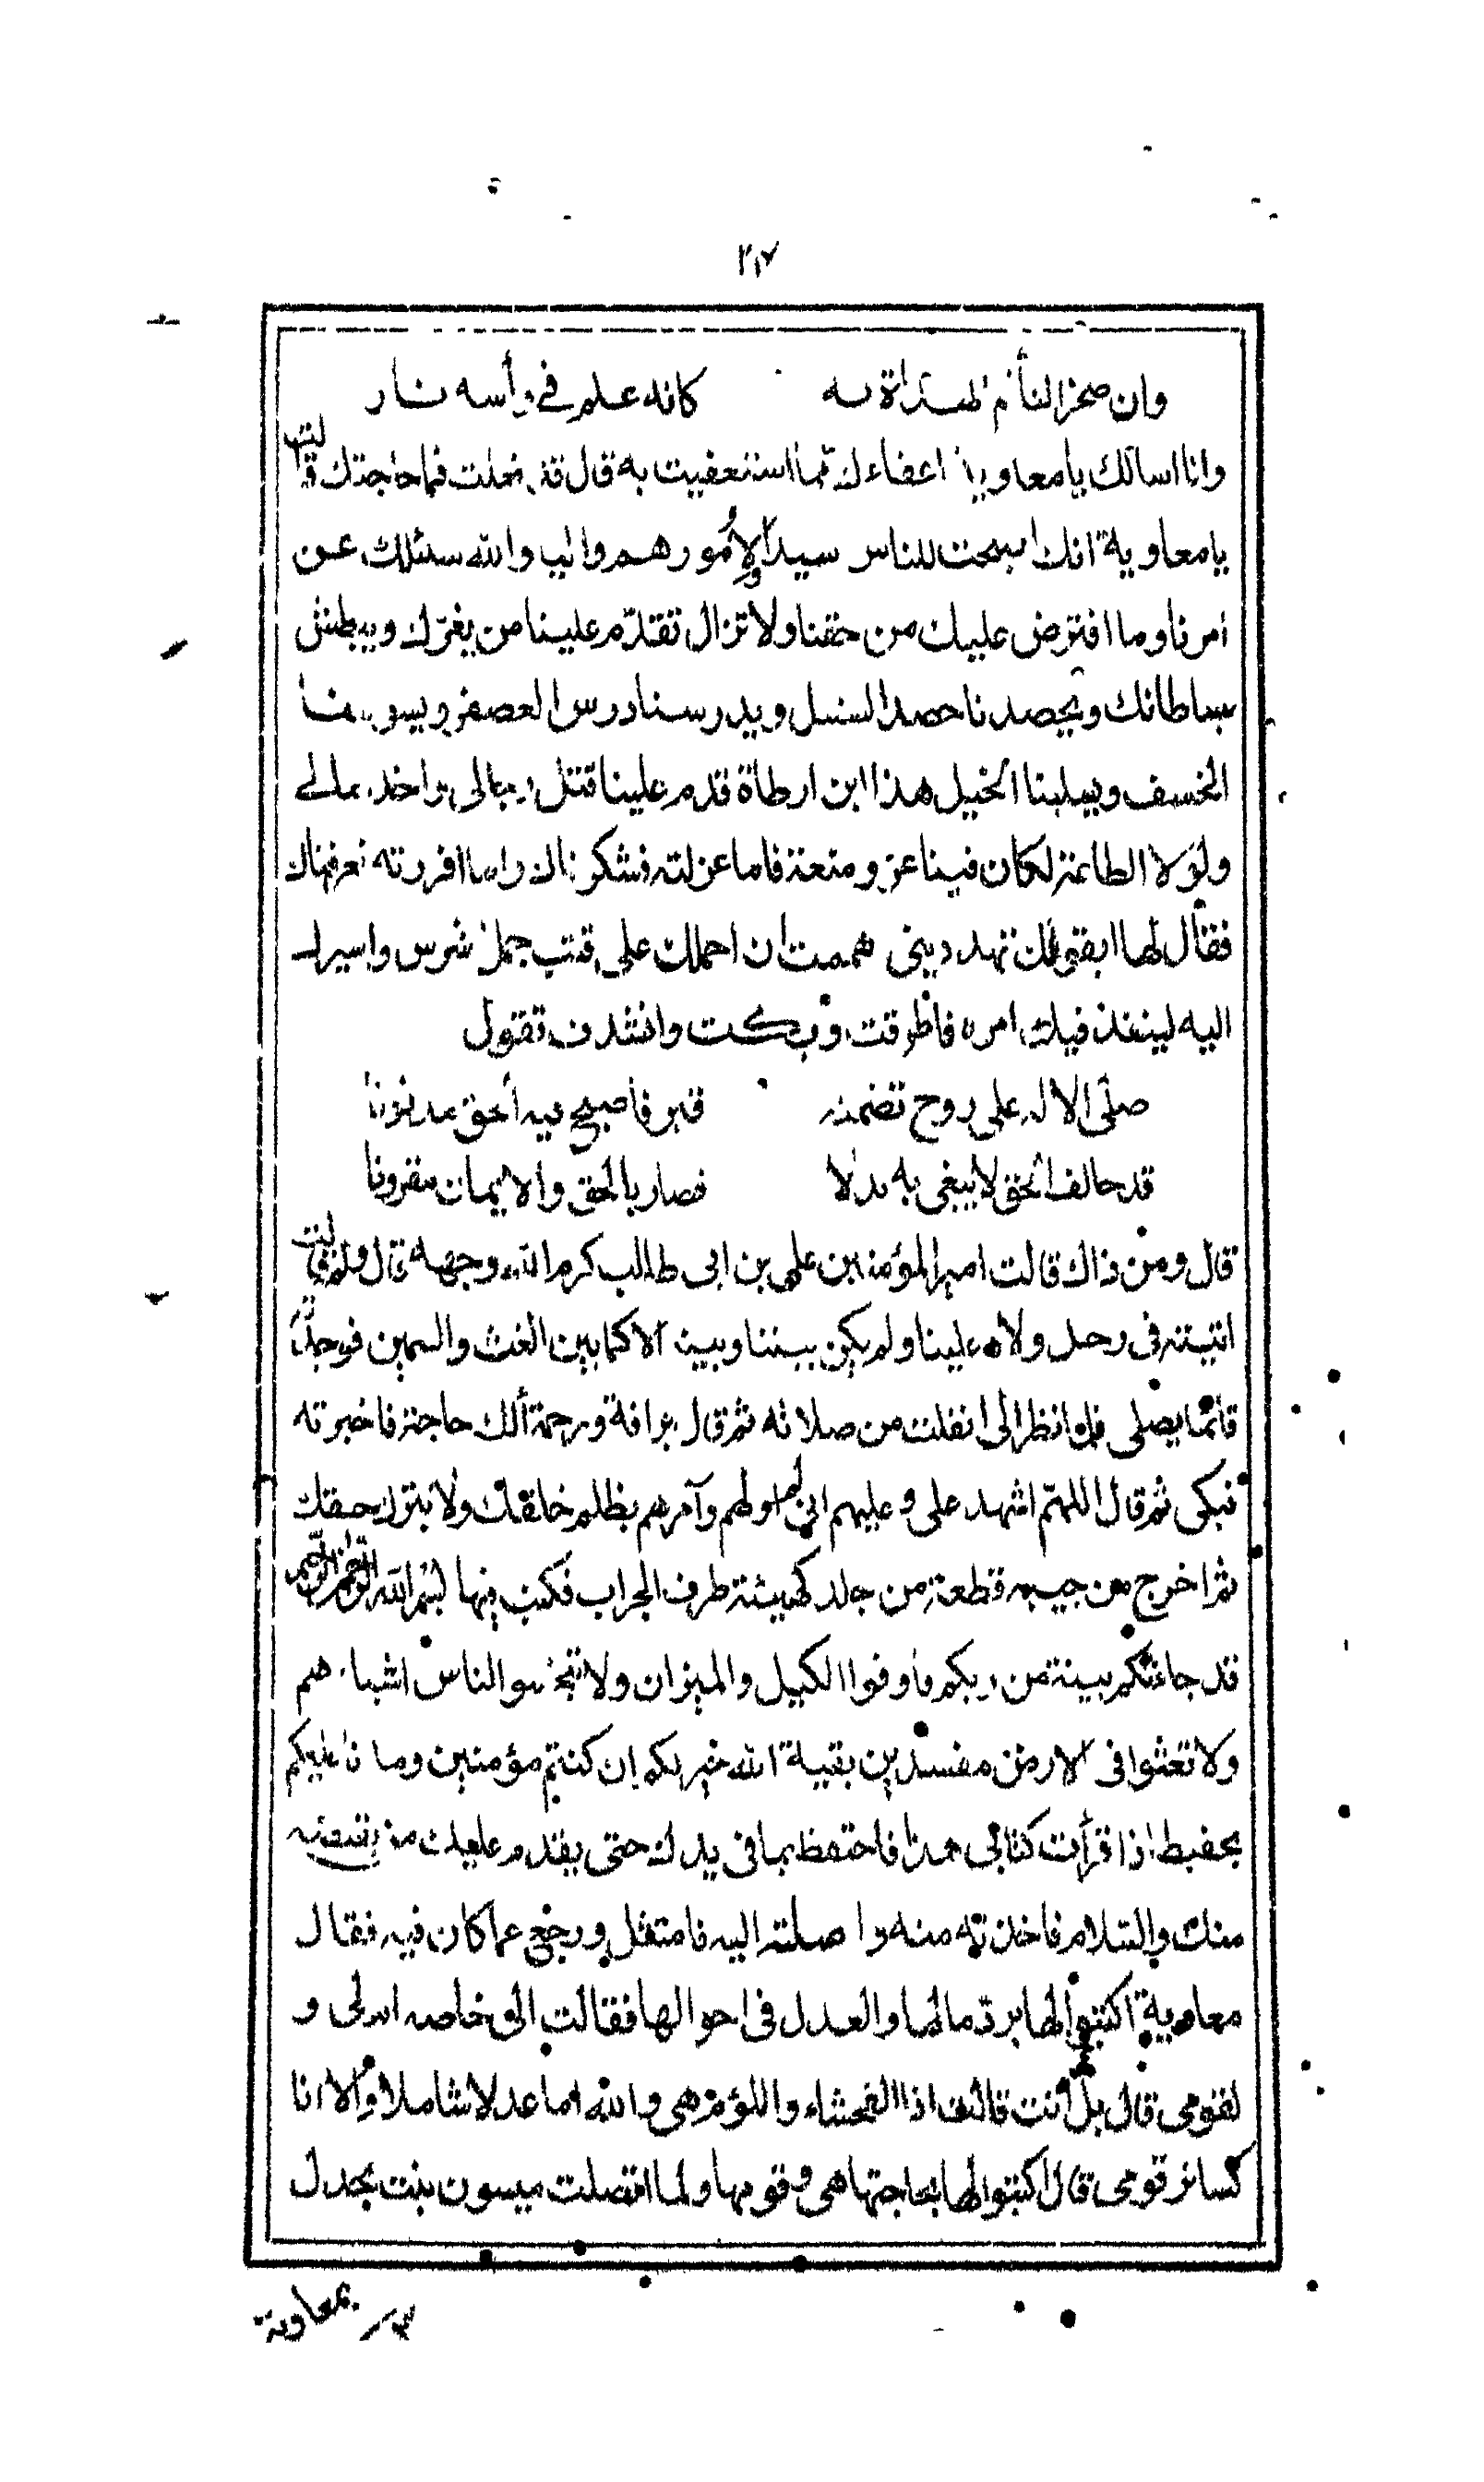 ٢١٧
وان صخرا لتأتم الهداة به كانه علم في رأسه نار
وانا اسالك يا معاوية اعفاءك مما استعفيت به قال قد فعلت فما حاجتك قالت
يا معاوية انك اصبحت للناس سيدا ولامورهم واليا والله سئلك عن
امرنا وما افترض عليك من حقنا ولا تزال تقدم علينا من يغرك ويبطش
بسلطانك ويحصدنا حصد السنبل ويدرسنا درس العصفر ويسومنا
الخسف ويسلبنا الخيل هذا ابن ارطاة قدم علينا قتل رجالى واخذ مالى
ولولا الطاعة لكان فينا عز ومنعة فاما عزلته فشكرناك واما اقررته فعرفناك
فقال لها ابقومك تهدديني هممت ان احملك على قتب جمل شرس واسيرك
اليه لينفذ فيك امره فاطرقت وبكت وانشدت تقول
صلى الاله على روح تضمنه قبر فأصبح فيه الحق مدفونا
قد حالف الحق لا يبغى به بدلا فصار بالحق والايمان مقرونا
قال ومن ذاك قالت امير المؤمنين على بن ابى طالب كرم الله وجهه قال ولم قالت
اتيته فى رجل ولاه علينا ولم يكن بيننا وبينه الا كما بين الغث والسمين فوجدته
قائما يصلى فلما نظر الى انفلت من صلاته ثم قال برافة ورحمة ألك حاجة فاخبرته
فبكى ثم قال اللهم اشهد على وعليهم انى لم اولهم وآمرهم بظلم خلقك ولا بترك حقك
ثم اخرج من جيبه قطعة من جلد كهيئة طرف الجراب فكتب فيها بسم الله الرحمن الرحيم
قد جاءتكم بينة من ربكم فاوفوا الكيل والميزان ولا تبخسوا الناس اشياءهم
ولا تعثوا فى الارض مفسدين بقية الله خير لكم ان كنتم مؤمنين وما انا عليكم
بحفيظ اذا قرأت كتابى هذا فاحتفظ بما فى يدك حتى يقدم عليك من يقبضه
منك والسلام فاخذته منه واوصلته اليه فامتثل ورجع عما كان فيه فقال
معاوية اكتبوا لها برد مالها والعدل فى احوالها فقالت الى خاصة ام لى و
لقومى قال بل أنت قالت اذا الفحشاء واللؤم هى والله اما عدلا شاملا والا انا
كسائر قومى قال اكتبوا لها بحاجتها هى وقومها ولما اتصلت ميسون بنت بجدل
بمعاوية